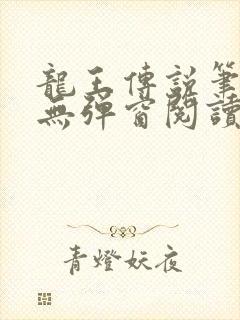 龍王傳説筆
無彈窗閱讀
青燈妖夜